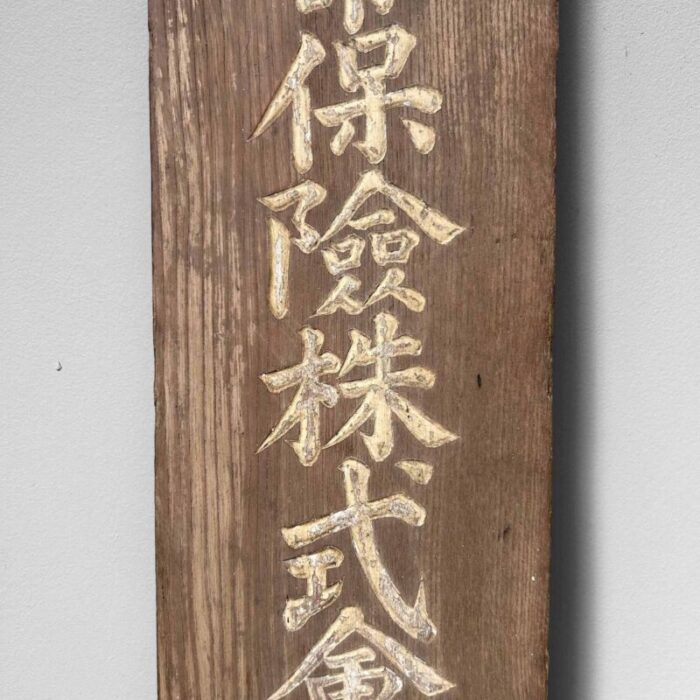 保險株式會